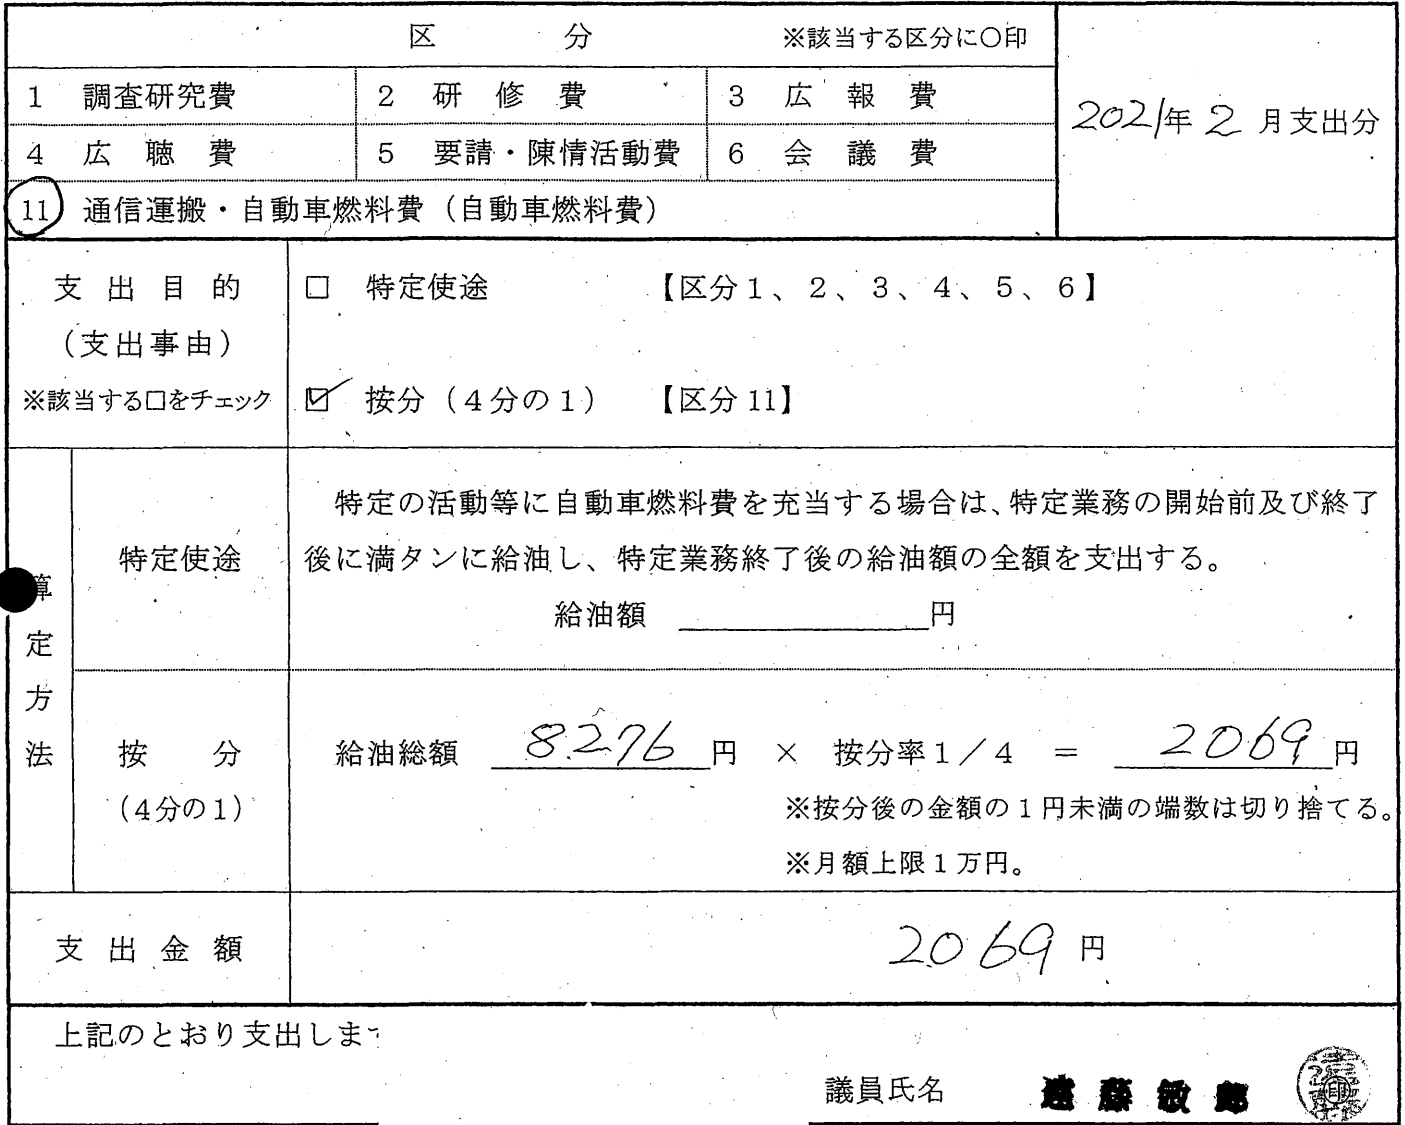 区 分 ※該当する区分に〇印
1 調査研究費 2 研修費 3 広報費
2021年2月支出分
4 広聴費 5 要請・陳情活動費 6 会議費
11 通信運搬・自動車燃料費（自動車燃料費）
支出目的
（支出事由）
※該当する□をチェック
□ 特定使途 【区分1、2、3、4、5、6】
☑ 按分（4分の1） 【区分11】
算定方法
特定使途
特定の活動等に自動車燃料費を充当する場合は、特定業務の開始前及び終了
後に満タンに給油し、特定業務終了後の給油額の全額を支出する。
給油額 円
按分
（4分の1）
給油総額 8276円 × 按分率1／4 ＝ 2069円
※按分後の金額の1円未満の端数は切り捨てる。
※月額上限1万円。
支出金額 2069円
上記のとおり支出しま
議員氏名 遠藤敏郎 印